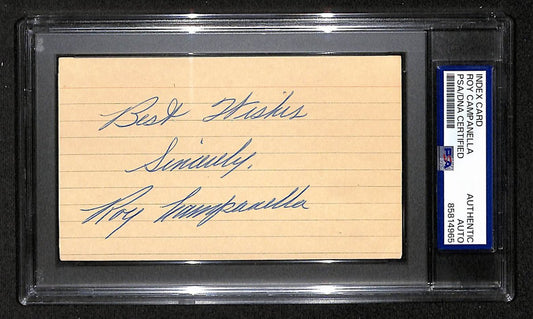 Best Wishes
Sincerely,
Roy Campanella
INDEX CARD
ROY CAMPANELLA
PSA/DNA CERTIFIED
PSA
AUTHENTIC
AUTO
85814965